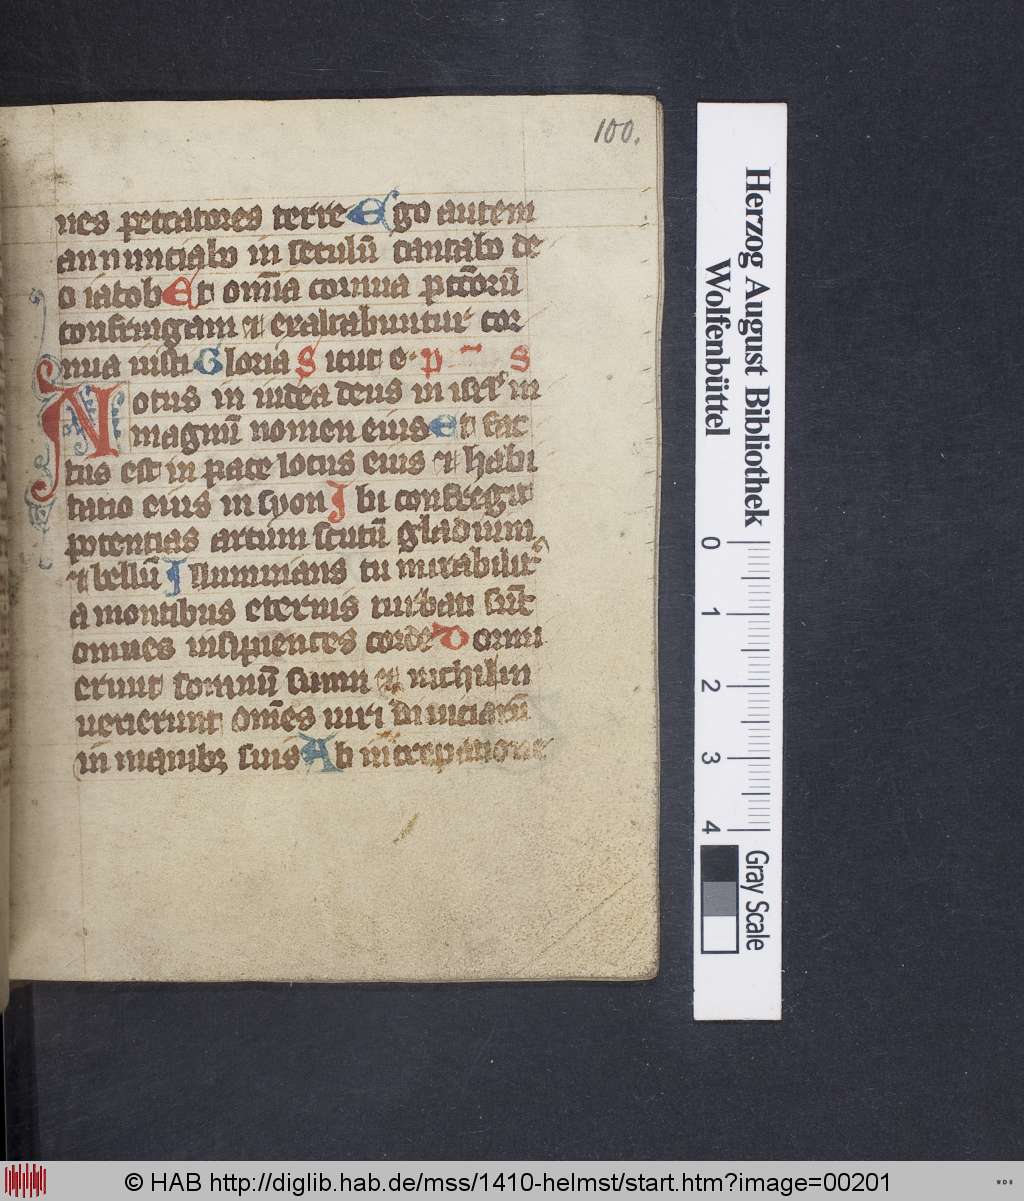 100.
nes peccatores terre Ego autem
annunciabo in seculū cantabo de
o iacob Et omīa cornua pcc̄orū
confringam et exaltabuntur cor
nua iusti Gloria Sicut e· p s
Notus in iudea deus in isrl' in
magnū nomen eius Et fac
tus est in pace locus eius et habi
tatio eius in syon Ibi confregit
potencias arcum scutū gladium
et bellū Illuminans tu mirabilit'
a montibus eternis turbati sūt
omnes insipientes corde Dormi
erunt somnū suum et nichil in
uenerunt om̄es uiri diuiciarū
in manibꝫ suis Ab increpatione
Herzog August Bibliothek
Wolfenbüttel
0 1 2 3 4
Gray Scale
© HAB http://diglib.hab.de/mss/1410-helmst/start.htm?image=00201